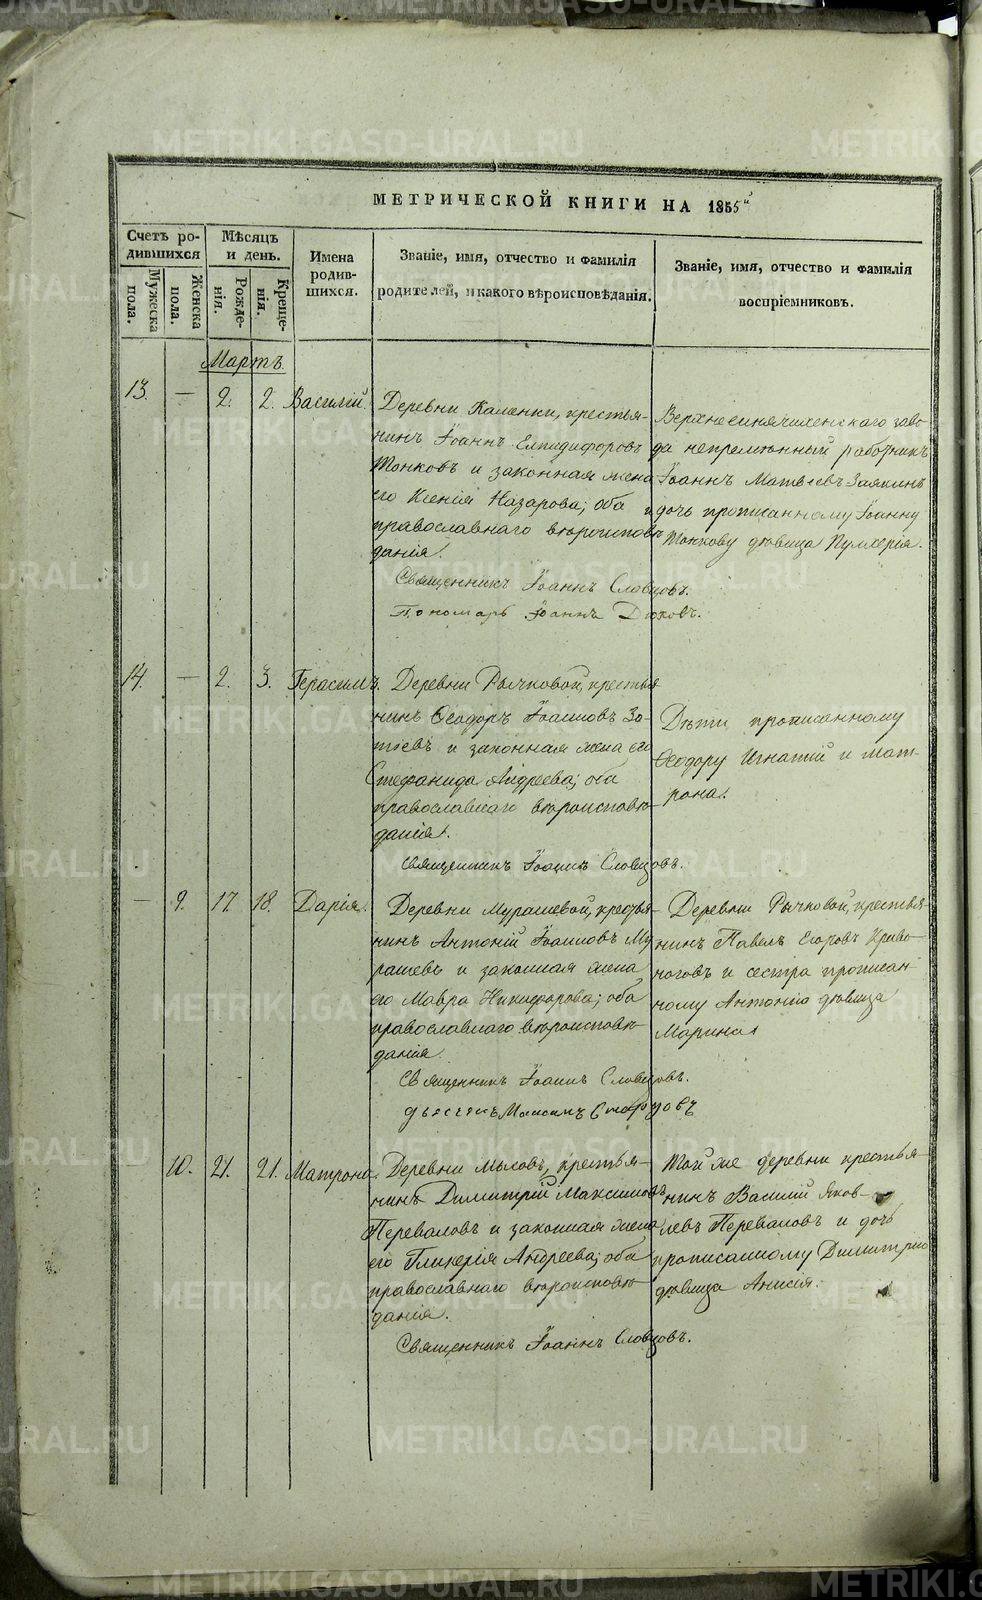 МЕТРИЧЕСКОЙ КНИГИ НА 1855й
Счетъ ро-
дившихся
Мѣсяцъ
и день.
Мужеска
пола.
Женска
пола.
Рожде-
нія.
Креще-
нія.
Имена
родив-
шихся.
Званіе, имя, отчество и фамилія
родителей, и какого вѣроисповѣданія.
Званіе, имя, отчество и фамилія
воспріемниковъ.
Мартъ.
13. — 2. 2. Василій.
Деревни Каменки, крестья-
нинъ Іоаннъ Елпидифоровъ
Тонковъ и законная жена
его Ксенія Назарова; оба
православнаго вѣроисповѣ-
данія.
Священникъ Іоаннъ Словцовъ.
Пономарь Іоаннъ Дюковъ.
Верхнесинячихенскаго заво-
да непремѣнный работникъ
Іоаннъ Матвѣевъ Заякинъ
и дочь прописанному Іоанну
Тонкову дѣвица Пулхерія.
14. — 2. 3. Герасимъ.
Деревни Рычковой, крестья-
нинъ Ѳеодоръ Іоанновъ Зо-
тѣевъ и законная жена его
Стефанида Андреева; оба
православнаго вѣроисповѣ-
данія.
Священникъ Іоаннъ Словцовъ.
Дѣти прописанному
Ѳеодору Игнатій и Мат-
рона.
— 9. 17. 18. Дарія.
Деревни Мурашевой, крестья-
нинъ Антоній Іоанновъ Му-
рашевъ и законная жена
его Мавра Никифорова; оба
православнаго вѣроисповѣ-
данія.
Священникъ Іоаннъ Словцовъ.
дьячекъ Максимъ Старцовъ
Деревни Рычковой, крестья-
нинъ Павелъ Егоровъ Криво-
ноговъ и сестра прописан-
ному Антонію дѣвица
Марина.
— 10. 21. 21. Матрона.
Деревни Мысовъ, крестья-
нинъ Димитрій Максимовъ
Переваловъ и законная жена
его Гликерія Андреева; оба
православнаго вѣроисповѣ-
данія.
Священникъ Іоаннъ Словцовъ.
Той же деревни крестья-
нинъ Василій Яков-
левъ Переваловъ и дочь
прописанному Димитрію
дѣвица Анисія.
METRIKI.GASO-URAL.RU